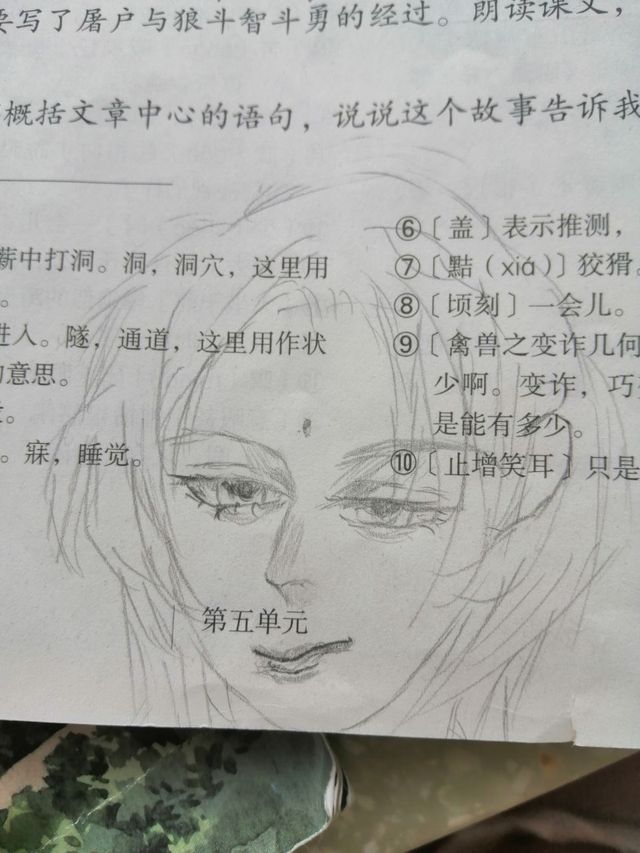 要写了屠户与狼斗智斗勇的经过。朗读课文，
概括文章中心的语句，说说这个故事告诉我
薪中打洞。洞，洞穴，这里用
。
进入。隧，通道，这里用作状
的意思。
。
。寐，睡觉。
⑥〔盖〕表示推测，
⑦〔黠（xiá）〕狡猾。
⑧〔顷刻〕一会儿。
⑨〔禽兽之变诈几何
少啊。变诈，巧
是能有多少。
⑩〔止增笑耳〕只是
第五单元